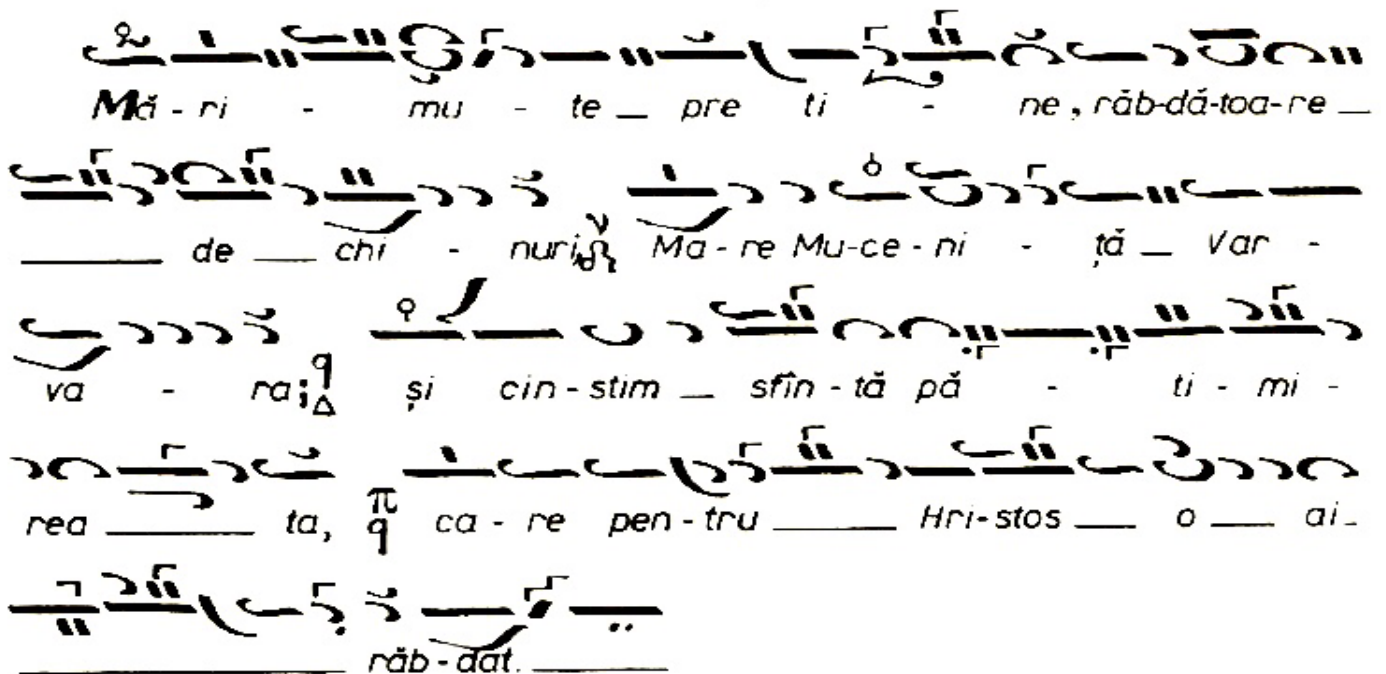 Mă - ri - mu - te _ pre ti - ne, răb-dă-toa-re _
___ de _ chi - nuri; Ma - re Mu-ce - ni - ță _ Var -
va - ra; q Δ și cin - stim _ sfîn - tă pă - ti - mi -
rea ___ ta, π q ca - re pen - tru ___ Hri-stos _ o _ ai _
___ răb - dat. ___